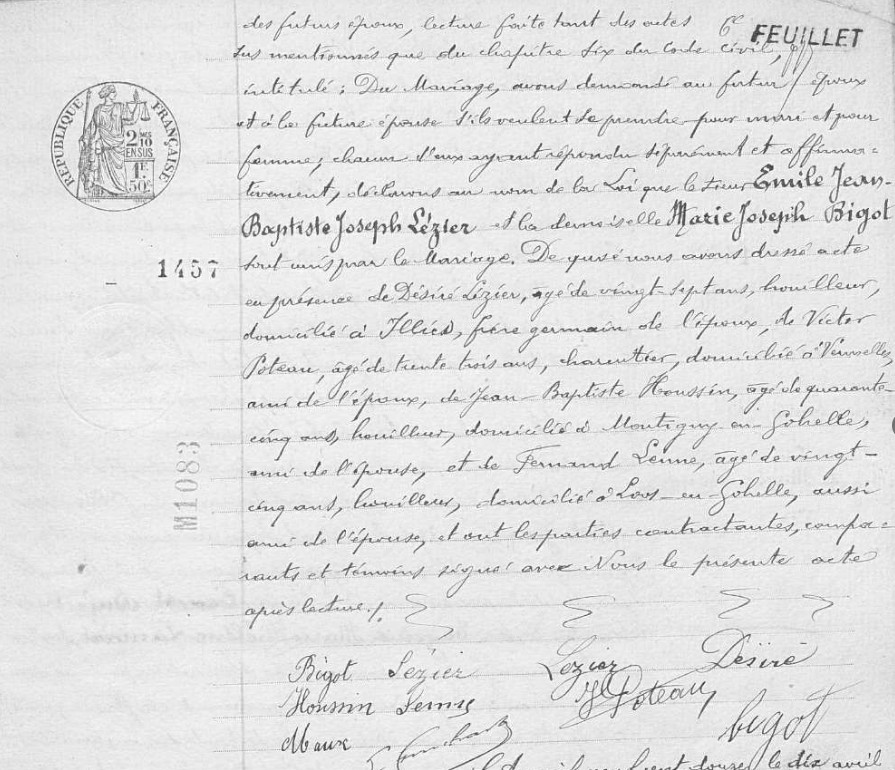 des futurs époux, lecture faite tant des actes
6e FEUILLET
sus mentionnés que du chapitre six du Code civil,
intitulé : Du Mariage, avons demandé au futur époux
et à la future épouse s'ils veulent se prendre pour mari et pour
femme; chacun d'eux ayant répondu séparément et affirma-
tivement, déclarons au nom de la Loi que le sieur Emile Jean-
Baptiste Joseph Lézier et la demoiselle Marie Joseph Bigot
sont unis par le Mariage. De quoi nous avons dressé acte
en présence de Désiré Lézier, âgé de vingt-sept ans, houilleur,
domicilié à Illies, frère germain de l'époux, de Victor
Poteau, âgé de trente trois ans, charentier, domicilié à Vermelles,
ami de l'époux, de Jean-Baptiste Houssin, âgé de quarante-
cinq ans, houilleur, domicilié à Montigny-en-Gohelle,
ami de l'épouse, et de Fernand Lenne, âgé de vingt-
cinq ans, houilleur, domicilié à Loos-en-Gohelle, aussi
ami de l'épouse, et ont les parties contractantes, compa-
rants et témoins signé avec Nous le présente acte
après lecture./.
RÉPUBLIQUE FRANÇAISE
2 10mes
EN SUS
1F
50c
1457
M1083
Bigot Lézier Lezier Désiré
Houssin Lenne Poteau
Maux bigot
douze, le dix avril